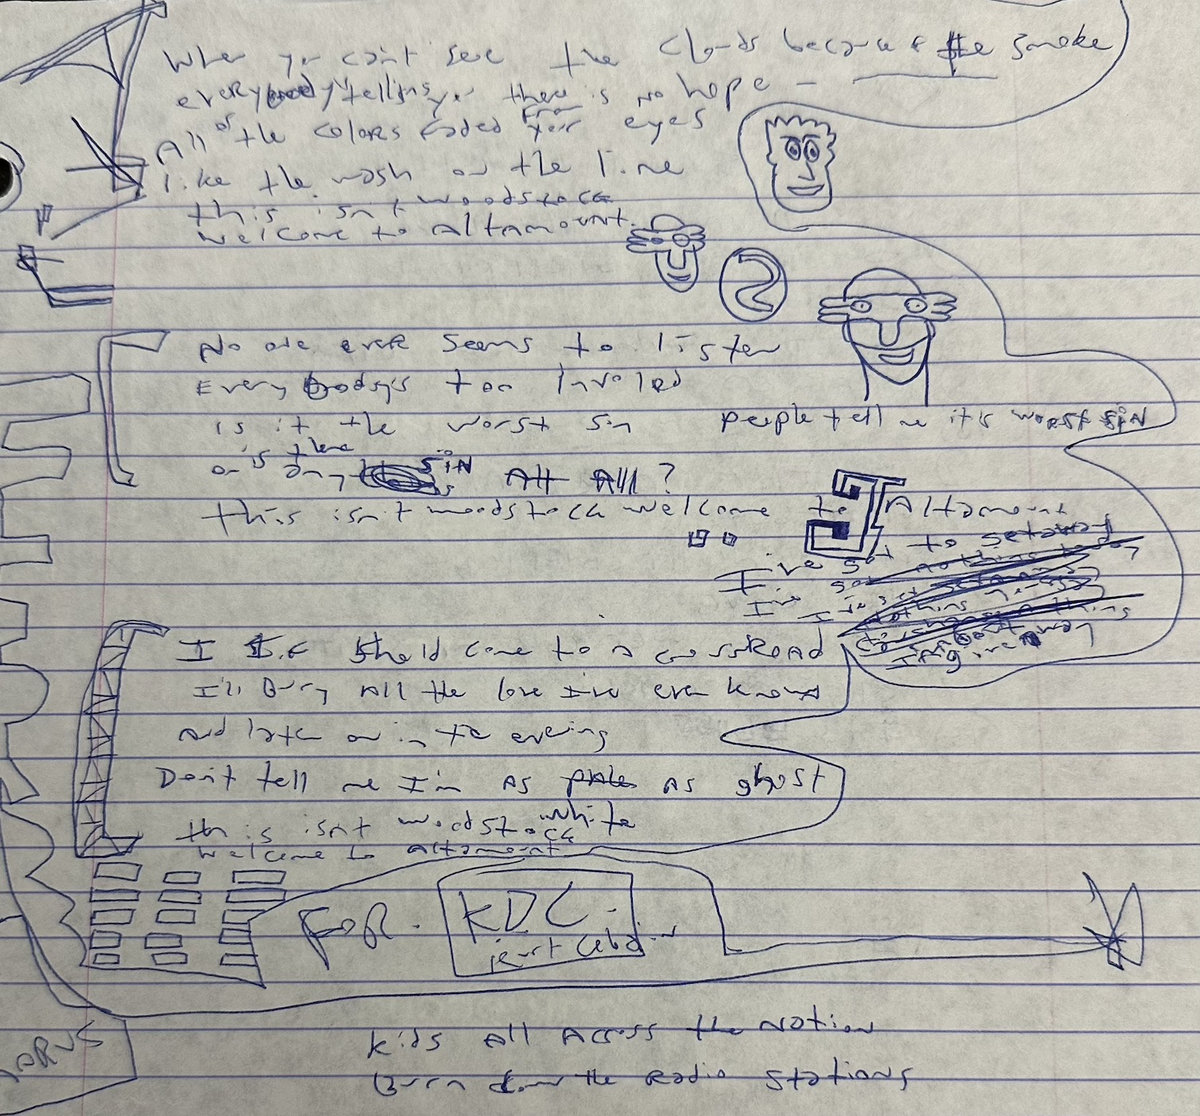 When you can't see the clouds because of the smoke
everybody telling you there is no hope -
All of the colors faded from your eyes
like the wash on the line
this isn't woodstock
welcome to altamount.
2
No one ever seems to listen
Everybodys too Involed
is it the worst sin people tell me it's worst sin
or is there any sin At All?
this isn't woodstock welcome to Altamount
I've got to
I've got
I If should come to a crossroad
I'll Bury All the love I've ever known
And later on in the evening
Don't tell me I'm as pale as ghost
white
this isn't woodstock
welcome to altamount
FOR. KDC.
kurt Cobain
kids All Across the Nation
Burn down the Radio Stations